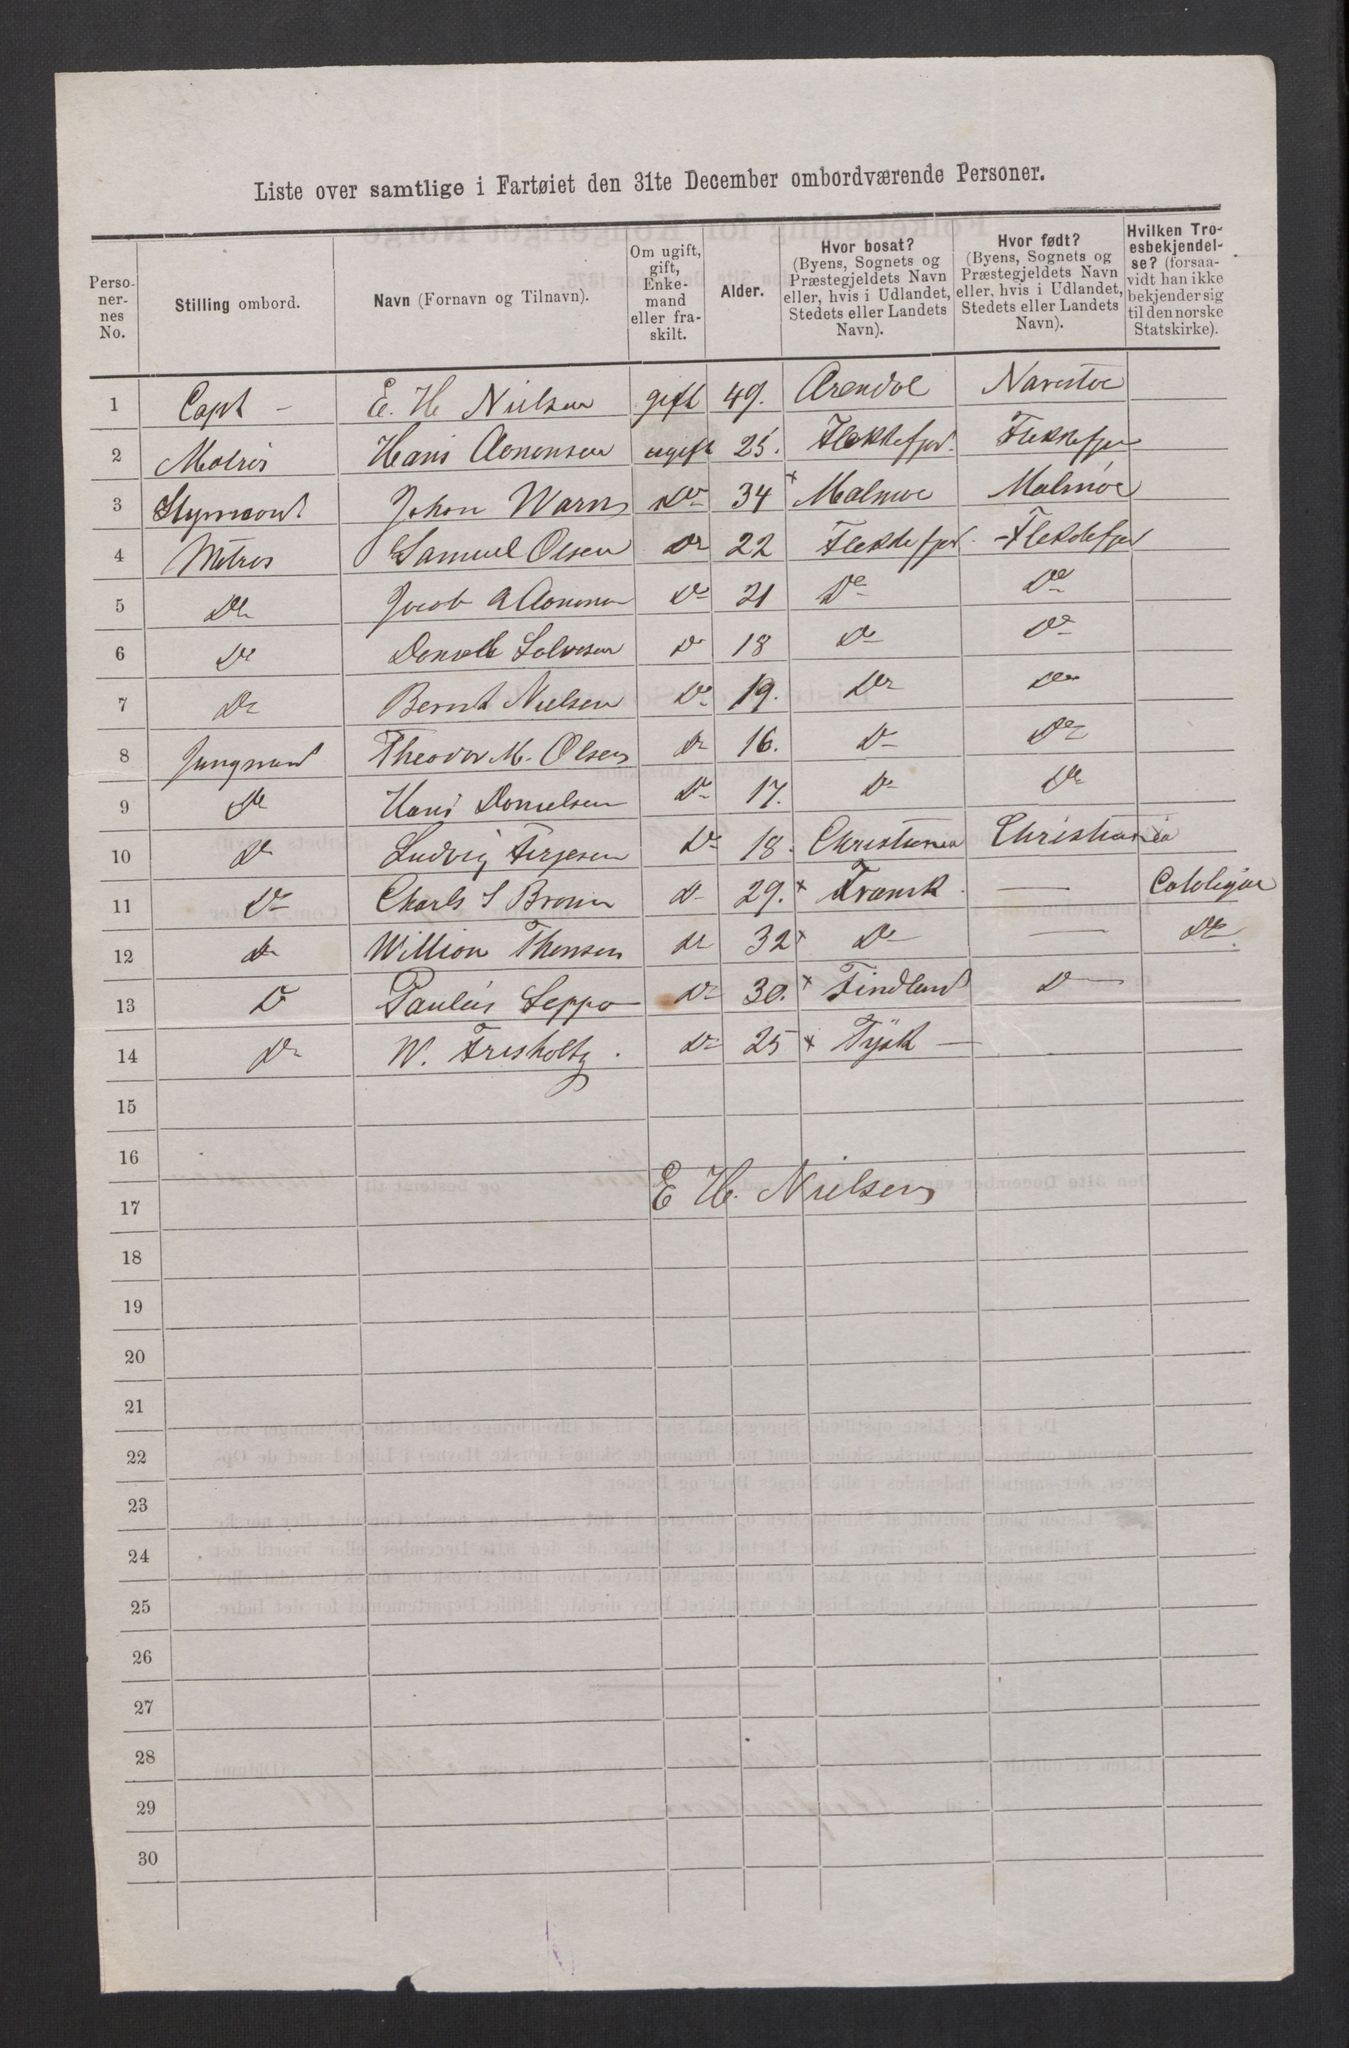 Liste over samtlige i Fartøiet den 31te December ombordværende Personer.
Personernes No. | Stilling ombord. | Navn (Fornavn og Tilnavn). | Om ugift, gift, Enkemand eller fraskilt. | Alder. | Hvor bosat? (Byens, Sognets og Præstegjeldets Navn eller, hvis i Udlandet, Stedets eller Landets Navn). | Hvor født? (Byens, Sognets og Præstegjeldets Navn eller, hvis i Udlandet, Stedets eller Landets Navn). | Hvilken Troesbekjendelse? (forsaavidt han ikke bekjender sig til den norske Statskirke).
1 Capt – E. H Nielsen gift 49. Arendal Narestoe
2 Matros Hans Aanensen ugift 25. Flekkefjor. Flekkefjor
3 Stymand Johan Warn Do 34 x Malmoe Malmoe
4 Matros Samuel Olsen Do 22 Flekkefjor Flekkefjor
5 Do Jacob Aanensen Do 21 Do Do
6 Do Salvesen Do 18 Do Do
7 Do Bernt Nielsen Do 19. Do Do
8 Jungmand Theodor M. Olsen Do 16. Do Do
9 Do Hans Danielsen Do 17. Do Do
10 Do Ludvig Do 18. Christiania Christiania
11 Do Charls S Brown Do 29. x Fransk — Catoligue
12 Do William Thomsen Do 32 x Do — Do
13 Do Paulus Seppo Do 30. x Findland Do —
14 Do W. Frisholtz. Do 25 x Tysk —
15
16
17 E H. Nielsen
18
19
20
21
22
23
24
25
26
27
28
29
30